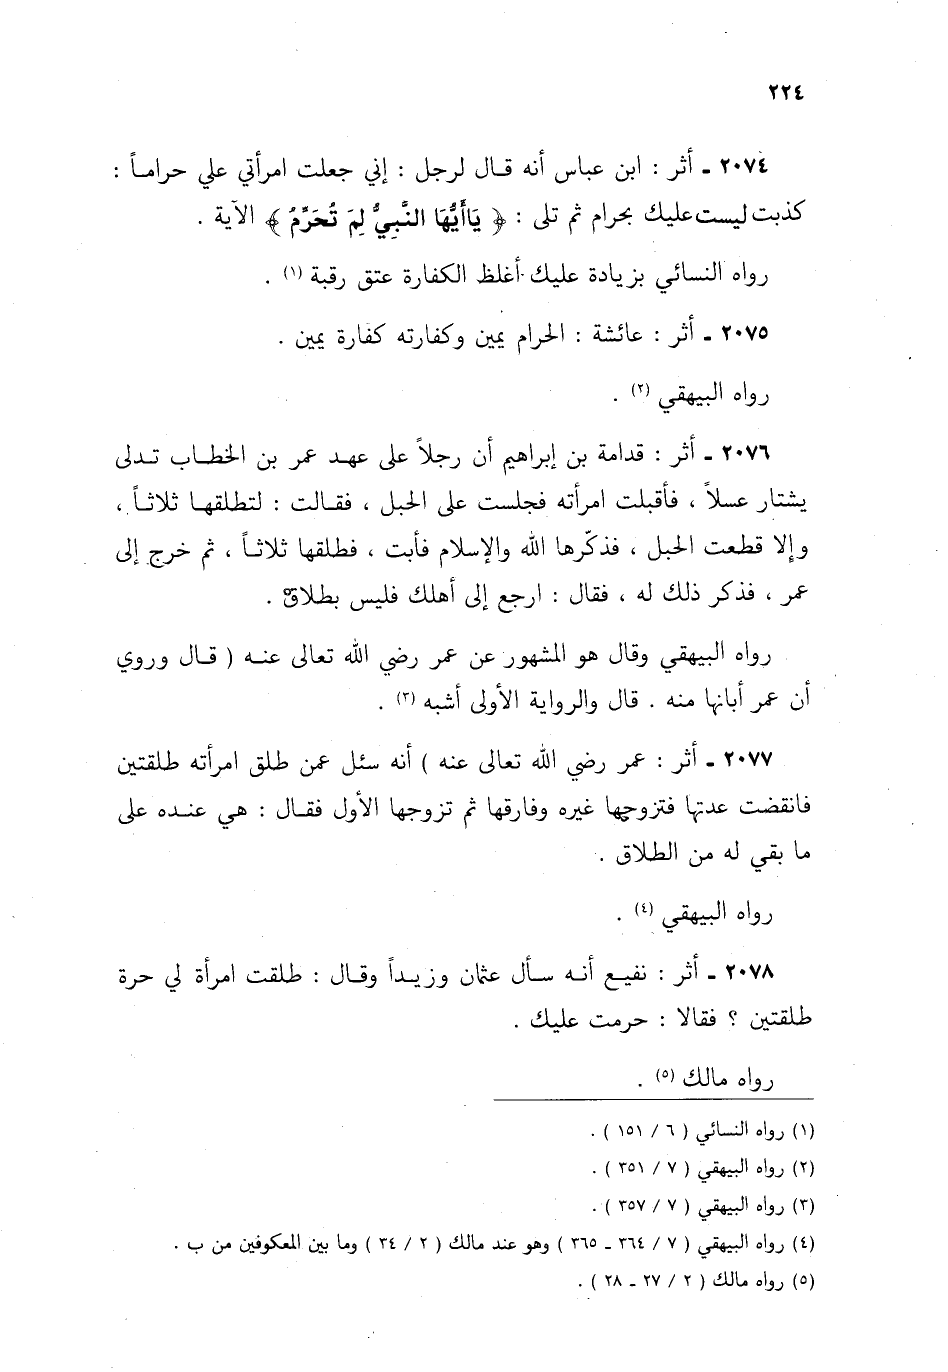 ٢٢٤
٢٠٧٤ ـ أثر : ابن عباس أنه قال لرجل : إني جعلت امرأتي علي حراماً :
كذبت ليست عليك بحرام ثم تلى : ﴿ يَاأَيُّهَا النَّبِيُّ لِمَ تُحَرِّمُ ﴾ الآية .
رواه النسائي بزيادة عليك أغلظ الكفارة عتق رقبة (١) .
٢٠٧٥ ـ أثر : عائشة : الحرام يمين وكفارته كفارة يمين .
رواه البيهقي (٢) .
٢٠٧٦ ـ أثر : قدامة بن إبراهيم أن رجلاً على عهد عمر بن الخطاب تدلى
يشتار عسلاً ، فأقبلت امرأته فجلست على الحبل ، فقالت : لتطلقها ثلاثاً ،
وإلا قطعت الحبل ، فذكّرها الله والإسلام فأبت ، فطلقها ثلاثاً ، ثم خرج إلى
عمر ، فذكر ذلك له ، فقال : ارجع إلى أهلك فليس بطلاق .
رواه البيهقي وقال هو المشهور عن عمر رضي الله تعالى عنه ( قال وروي
أن عمر أبانها منه . قال والرواية الأولى أشبه (٣) .
٢٠٧٧ ـ أثر : عمر رضي الله تعالى عنه ) أنه سئل عمن طلق امرأته طلقتين
فانقضت عدتها فتزوجها غيره وفارقها ثم تزوجها الأول فقال : هي عنده على
ما بقي له من الطلاق .
رواه البيهقي (٤) .
٢٠٧٨ ـ أثر : نفيع أنه سأل عثمان وزيداً وقال : طلقت امرأة لي حرة
طلقتين ؟ فقالا : حرمت عليك .
رواه مالك (٥) .
(١) رواه النسائي ( ٦ / ١٥١ ) .
(٢) رواه البيهقي ( ٧ / ٣٥١ ) .
(٣) رواه البيهقي ( ٧ / ٣٥٧ ) .
(٤) رواه البيهقي ( ٧ / ٣٦٤ ـ ٣٦٥ ) وهو عند مالك ( ٢ / ٣٤ ) وما بين المعكوفين من ب .
(٥) رواه مالك ( ٢ / ٢٧ ـ ٢٨ ) .